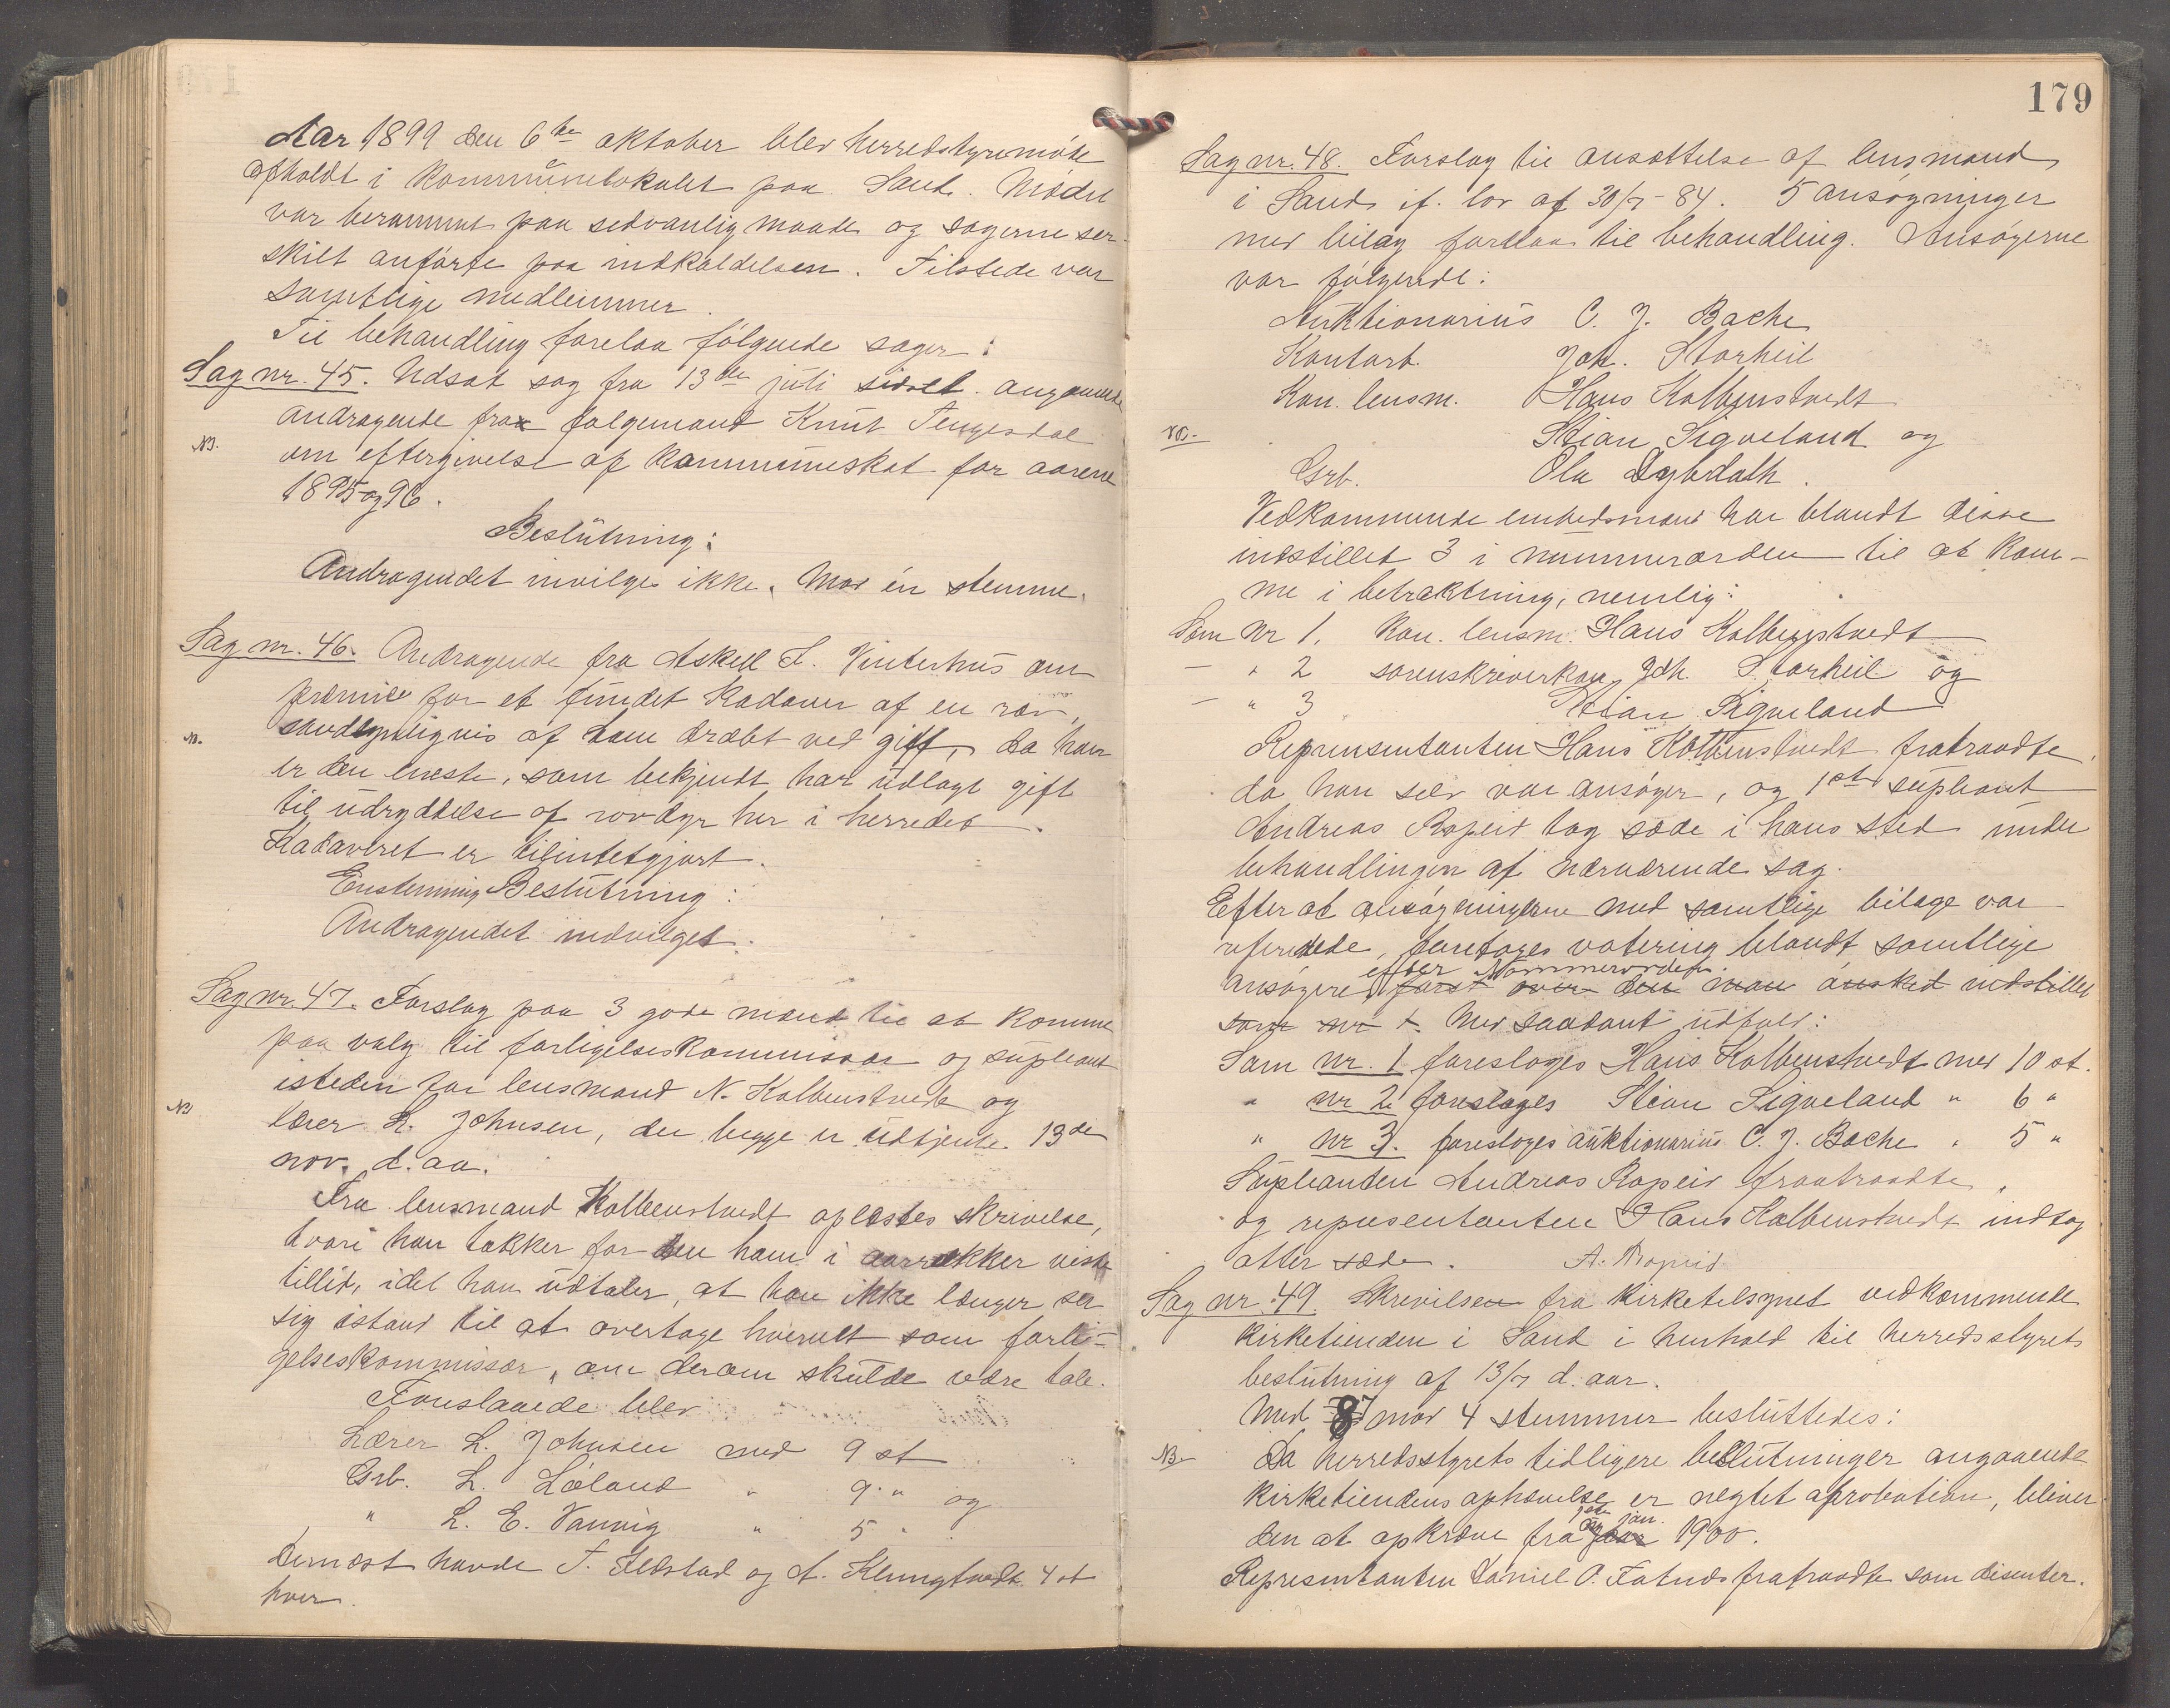 Aar 1899 den 6te oktober blev herredstyremøde
afholdt i kommunelokalet paa Sand. Mødet
var berammet paa sedvanlig maade og sagerne ser-
skilt anførte paa indkaldelsen. Tilstede var
samtlige medlemmer.
Til behandling forelaa følgende sager:
Sag nr. 45. Udsat sag fra 13de juli sidst. angaaende
andragende fra folgemand Knut Tengesdal
NB.
om eftergivelse af kommuneskat for aarene
1895 og 96.
Beslutning:
Andragendet invilges ikke. Mod én stemme.
Sag nr. 46. Andragende fra Askell L. Vinterhus om
præmie for et fundet kadaver af en ræv,
NB.
sandsynligvis af ham dræbt ved gift, da han
er den eneste, som bekjendt har udlagt gift
til udryddelse af rovdyr her i herredet.
Kadaveret er tilintetgjort.
Enstemmig Beslutning:
Andragendet indvilget.
Sag nr. 47. Forslag paa 3 gode mænd til at komme
paa valg til forligelseskommissær og supleant
isteden for lensmand N. Kolbenstvedt og
NB
lærer L. Johnsen, der begge er udtjente 13de
nov. d. aa.
Fra lensmand Kolbenstvedt oplæstes skrivelse,
hvori han takker for den ham i aarrækker viste
tillid, idet han udtaler, at han ikke længer ser
sig istand til at overtage hvervet som forli-
gelseskommissær, om derom skulde være tale.
Foreslaaede blev
Lærer L. Johnsen med 9 st
Grb. L. Løland " 9 " og
" L. E. Vanvig " 5 "
Dernæst havde T. Ilebstad og A. Klungtvedt 4 st
hver.
179
Sag nr. 48. Forslag til ansættelse af lensmand
i Sand if. lov af 30/7-84. 5 ansøgninger
med bilag forelaa til behandling. Ansøgerne
var følgende:
Auktionarius C. J. Bache
Kontorb. Joh. Storheil
Kon. lensm. Hans Kolbenstvedt
NB.
Stian Sigveland og
Grb. Ola Dybdath.
Vedkommende embedsmand har blandt disse
indstillet 3 i nummerorden til at kom-
me i betraktning, nemlig:
Som Nr 1. Kon. lensm. Hans Kolbenstvedt
— " 2 sorenskriverkon. Joh. Storheil og
— " 3 Stian Sigveland
Representanten Hans Kolbenstvedt fratraadte,
da han selv var ansøger, og 1ste supleant
Andreas Ropeid tog sæde i hans sted under
behandlingen af nærværende sag.
Efter at ansøgningerne med samtlige bilage var
refererede, foretoges votering blandt samtlige
efter Nommerorden.
ansøgere først over den man ønsked indstillet
som nr 1. Med saadant udfald:
Som nr. 1 foresloges Hans Kolbenstvedt med 10 st.
" nr 2 foresloges Stian Sigveland " 6 "
" nr 3. foresloges auktionarius C. J. Bache " 5 "
Supleanten Andreas Ropeid fratraadte,
og representanten Hans Kolbenstvedt indtog
atter sæde. A. Ropeid
Sag nr. 49. Skrivelsen fra kirketilsynet vedkommende
kirketienden i Sand i henhold til herredsstyrets
beslutning af 13/7 d. aar.
Med 8 mod 4 stemmer besluttedes:
NB.
Da herredsstyrets tidligere beslutninger angaaende
kirketiendens ophævelse er negtet aprobation, bliver
jan.
den at opkræve fra 1900.
Representanten Daniel O. Fatnes fratraadte som disenter.